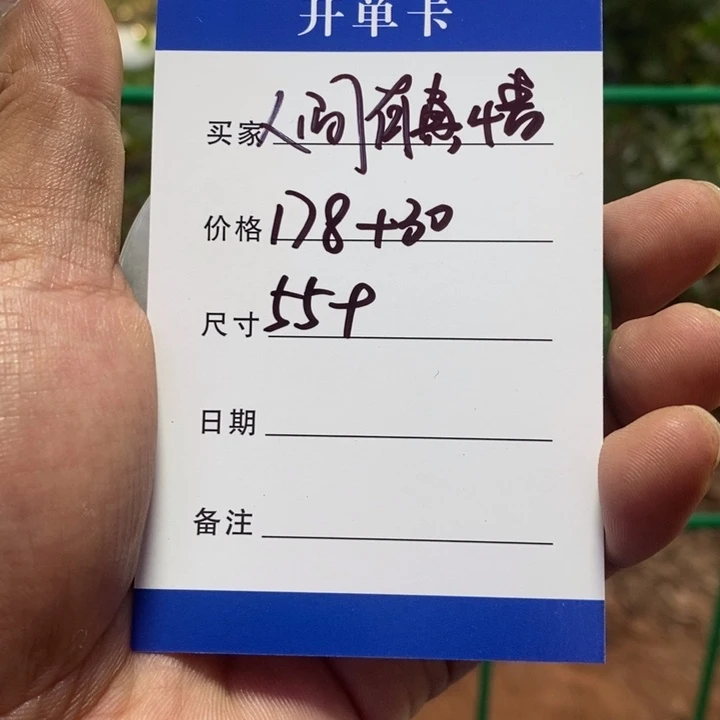 开单卡
买家 人间有真情
价格 178+30
尺寸 559
日期
备注